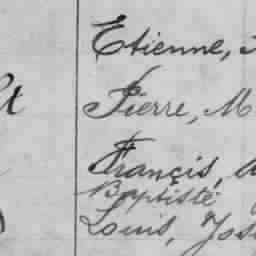 Etienne,
Pierre, M
François,
Baptiste
Louis, Jos